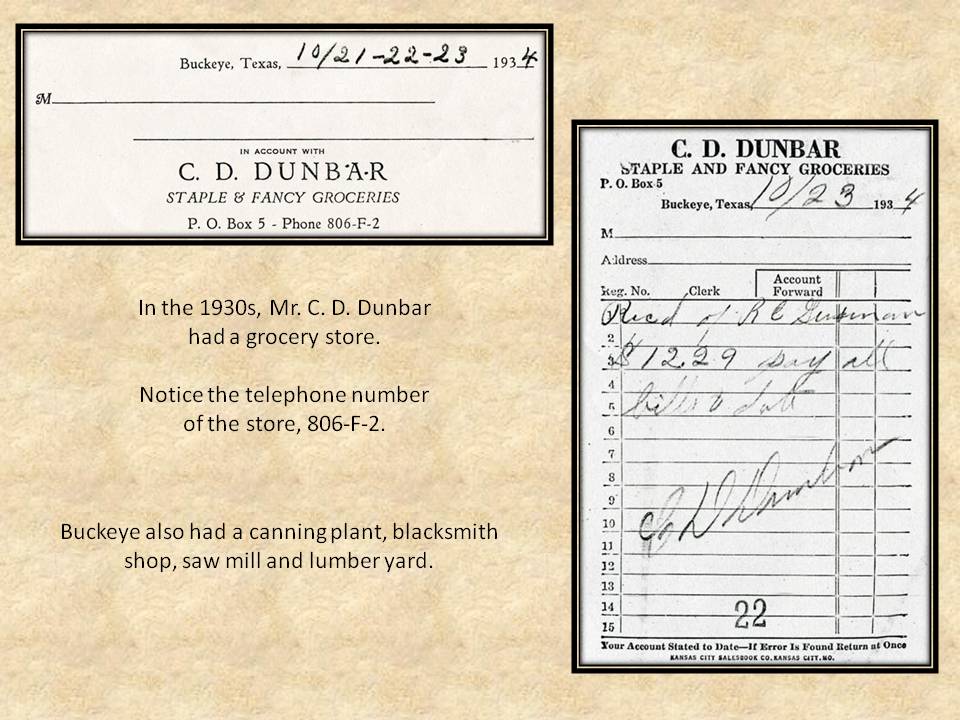 Buckeye, Texas, 10/21-22-23 1934
M
IN ACCOUNT WITH
C. D. DUNBAR
STAPLE & FANCY GROCERIES
P. O. Box 5 - Phone 806-F-2
In the 1930s, Mr. C. D. Dunbar
had a grocery store.
Notice the telephone number
of the store, 806-F-2.
Buckeye also had a canning plant, blacksmith
shop, saw mill and lumber yard.
C. D. DUNBAR
STAPLE AND FANCY GROCERIES
P. O. Box 5
Buckeye, Texas, 10/23 1934
M
Address
Reg. No. Clerk Account Forward
Recd of R C
2
3 $12.29 pay all
4
5 bills to date
6
7
8
9
10 C D Dunbar
11
12
13
14 22
15
Your Account Stated to Date—If Error Is Found Return at Once
KANSAS CITY SALESBOOK CO. KANSAS CITY, MO.